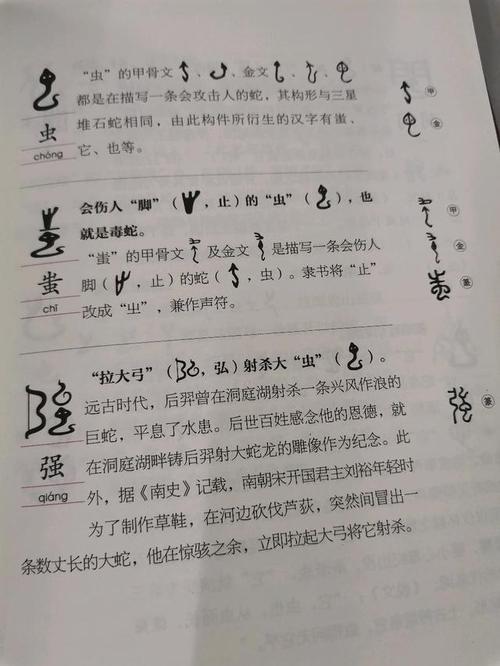 “虫”的甲骨文、、金文、、
都是在描写一条会攻击人的蛇，其构形与三星
堆石蛇相同，由此构件所衍生的汉字有蚩、
它、也等。
虫
chóng
甲
金
会伤人“脚”（，止）的“虫”（），也
就是毒蛇。
“蚩”的甲骨文及金文是描写一条会伤人
脚（，止）的蛇（，虫）。隶书将“止”
改成“㞢”，兼作声符。
蚩
chī
甲
金
篆
“拉大弓”（，弘）射杀大“虫”（）。
远古时代，后羿曾在洞庭湖射杀一条兴风作浪的
巨蛇，平息了水患。后世百姓感念他的恩德，就
在洞庭湖畔铸后羿射大蛇龙的雕像作为纪念。此
外，据《南史》记载，南朝宋开国君主刘裕年轻时
为了制作草鞋，在河边砍伐芦荻，突然间冒出一
条数丈长的大蛇，他在惊骇之余，立即拉起大弓将它射杀。
强
qiáng
篆